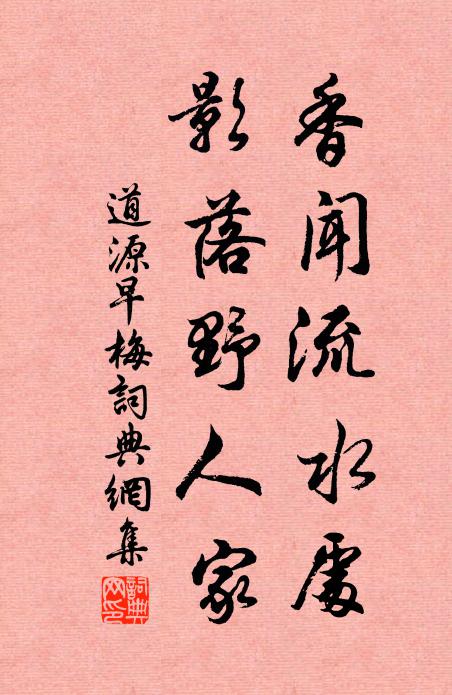 香聞流水處
影落野人家
道源早梅詞典網集
詞典网印